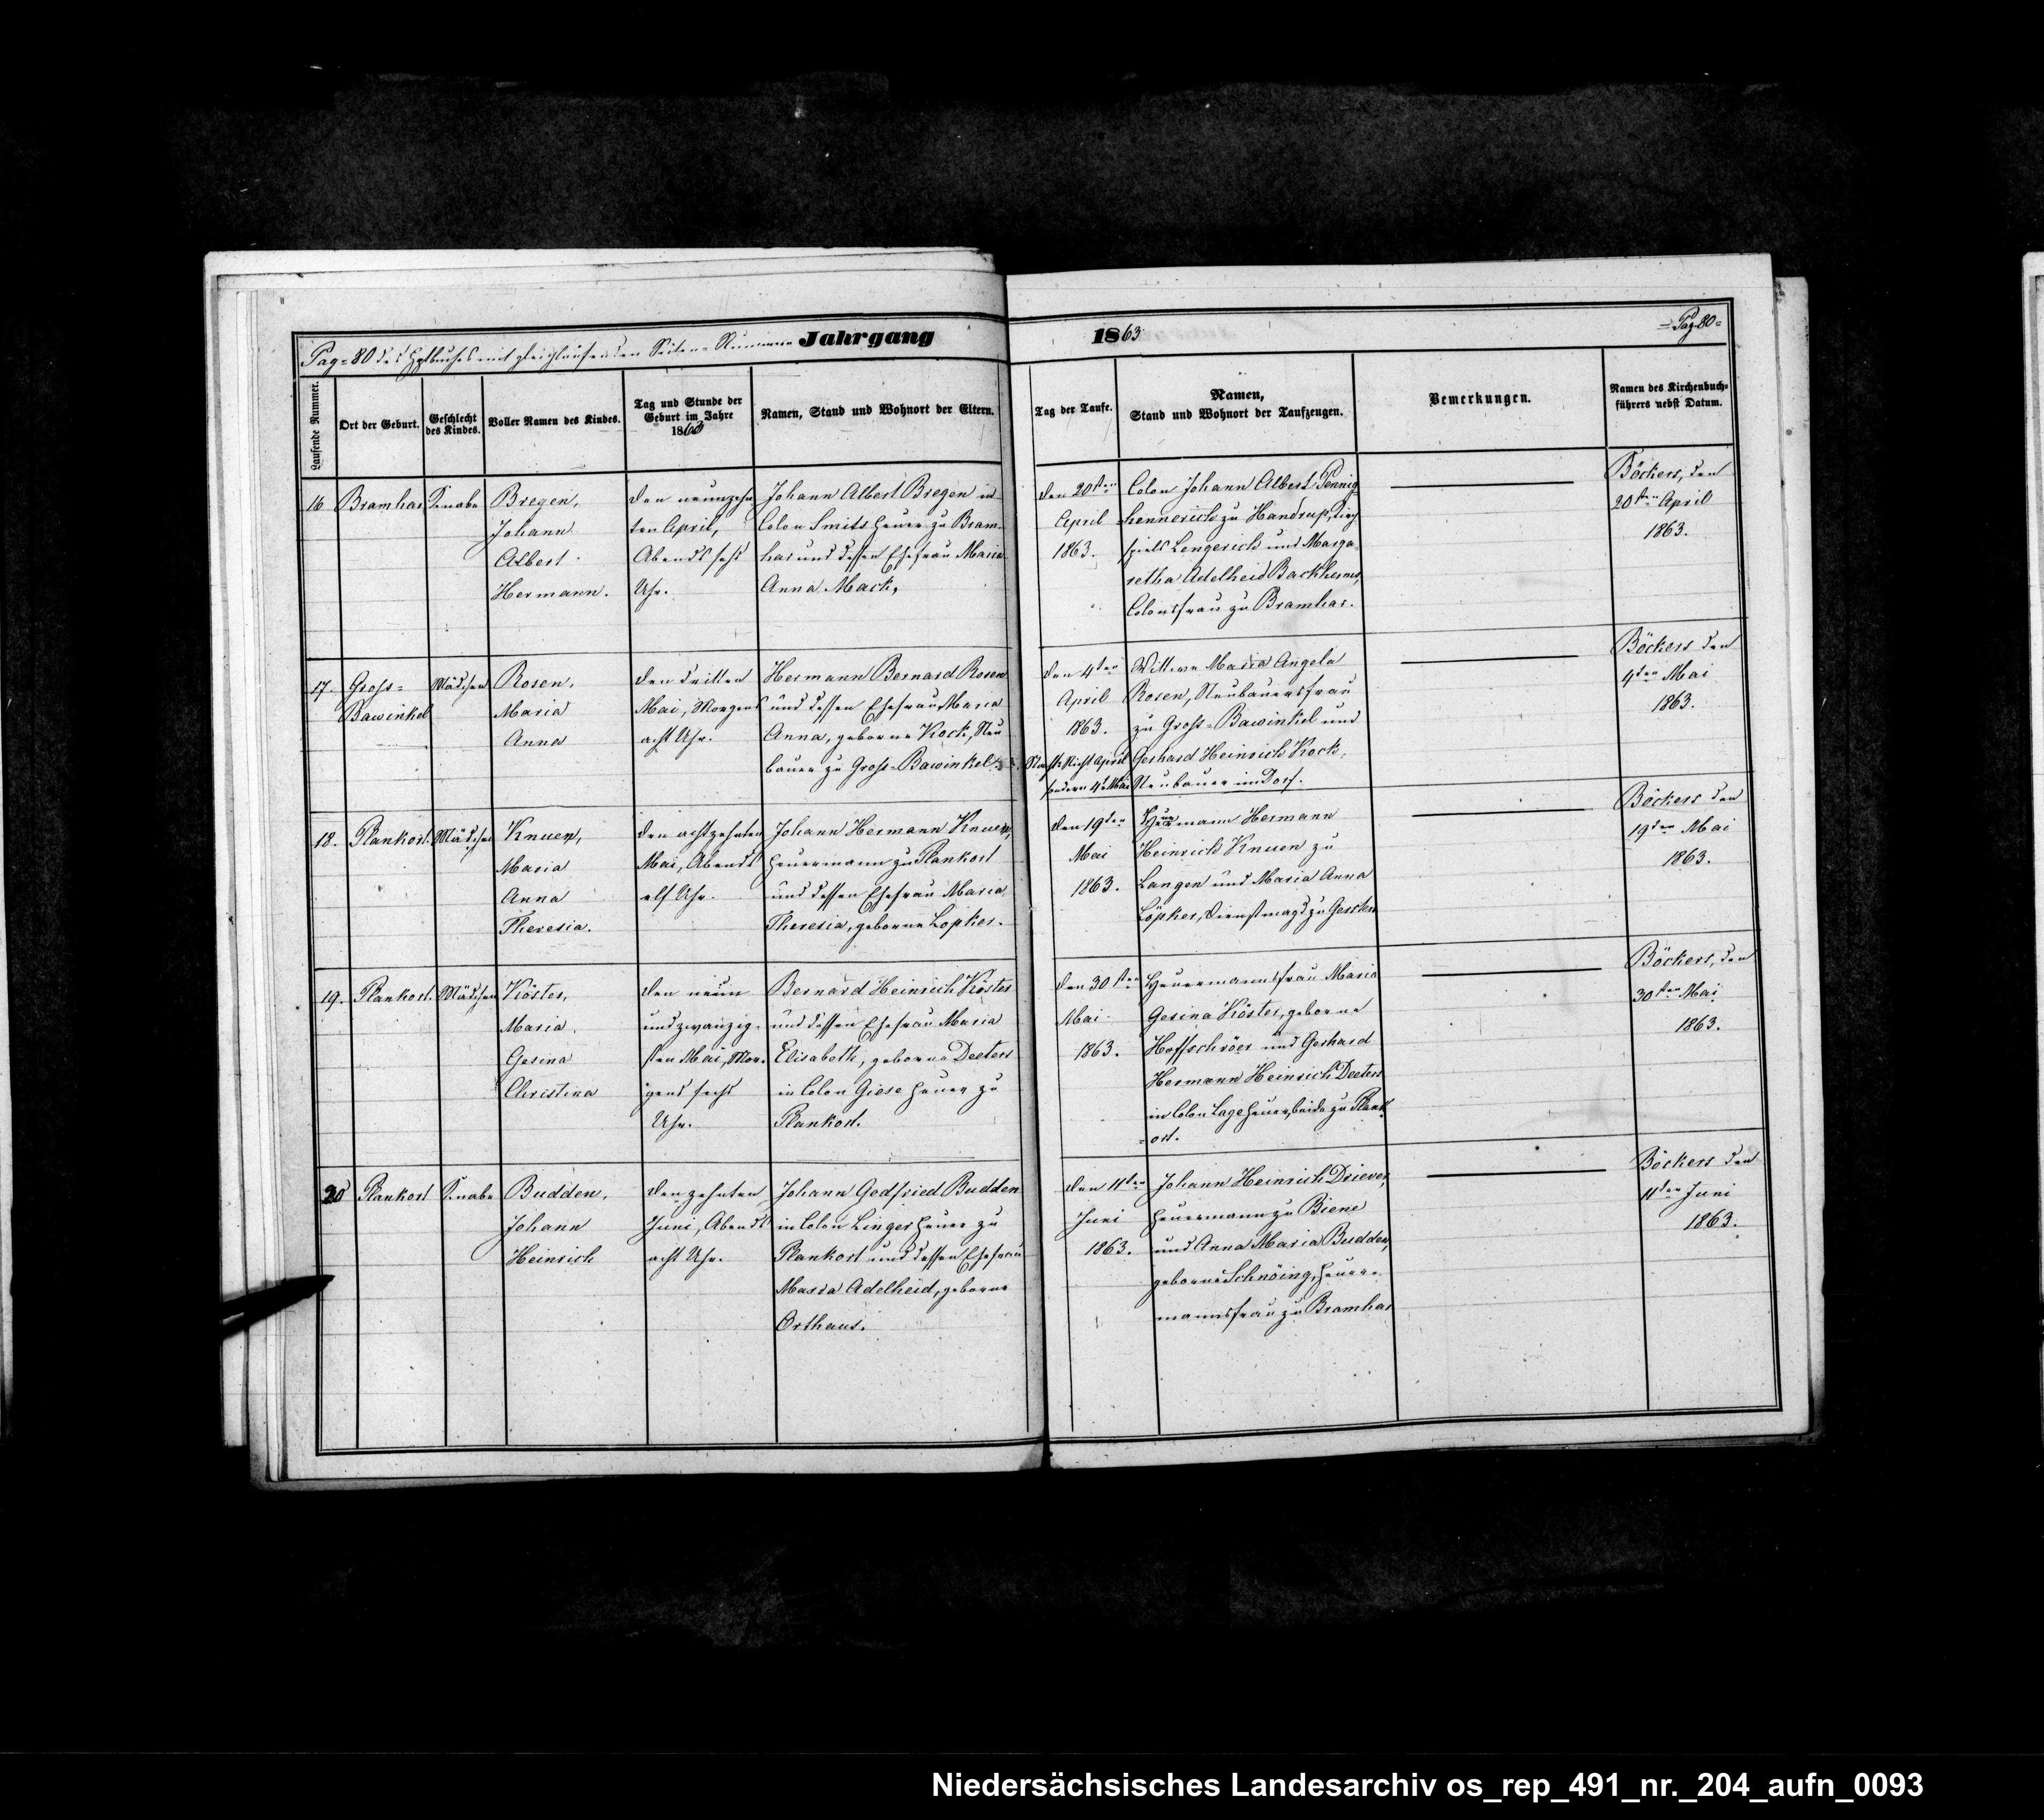 Pag=80 des Hptbuches mit gleichlaufenden Seiten=Nummern Jahrgang 1863 =Pag 80=
Laufende Nummer.
Ort der Geburt.
Geschlecht
des Kindes.
Voller Namen des Kindes.
Tag und Stunde der
Geburt im Jahre
1863
Namen, Stand und Wohnort der Eltern.
Tag der Taufe.
Namen,
Stand und Wohnort der Taufzeugen.
Bemerkungen.
Namen des Kirchenbuch=
führers nebst Datum.
16
Bramhar
Knabe
Bregen,
Johann
Albert
Hermann.
den neunzehn
ten April,
Abends sechs
Uhr.
Johann Albert Bregen in
Colon Smits Heuer zu Bram=
har und dessen Ehefrau Maria
Anna Mack,
den 20sten
April
1863.
Colon Johann Albert Pennig
hennerich zu Handrup, Kirch
spiels Lengerich und Marga
retha Adelheid Backherms,
Colonsfrau zu Bramhar.
Böckers, den
20sten April
1863.
17.
Gross=
Bawinkel
Mädchen
Rosen,
Maria
Anna
den dritten
Mai, Morgens
acht Uhr.
Hermann Bernard Rosen
und dessen Ehefrau Maria
Anna, geborne Kock, Neu
bauer zu Gross=Bawinkel.
den 4ten
April
1863.
Nicht April
sondern 4t Mai
Wittwe Maria Angela
Rosen, Neubauersfrau
zu Gross=Bawinkel und
Gerhard Heinrich Kock,
Neubauer im Dorf.
Böckers den
4ten Mai
1863.
18.
Plankort.
Mädchen
Knuen,
Maria
Anna
Theresia.
den achtzehnten
Mai, Abends
elf Uhr.
Johann Hermann Knuen,
Heuermann zu Plankort
und dessen Ehefrau Maria
Theresia, geborne Löpker.
den 19ten
Mai
1863.
Heuermann Hermann
Heinrich Knuen zu
Langen und Maria Anna
Löpker, Dienstmagd zu Gersten
Böckers den
19ten Mai
1863.
19.
Plankort.
Mädchen
Köster,
Maria
Gesina
Christina
den neun
und zwanzig=
sten Mai, Mor=
gens sechs
Uhr.
Bernard Heinrich Köster
und dessen Ehefrau Maria
Elisabeth, geborne Deeters
in Colon Giese Heuer zu
Plankort.
den 30sten
Mai
1863.
Heuermannsfrau Maria
Gesina Köster, geborne
Hoffschröer und Gerhard
Hermann Heinrich Deeters
in Colon Lage Heuer, beide zu Plank
=ort.
Böckers, den
30sten Mai
1863.
20
Plankort
Knabe
Budden,
Johann
Heinrich
den zehnten
Juni, Abends
acht Uhr.
Johann Godfried Budden
in Colon Linger Heuer zu
Plankort und dessen Ehefrau
Maria Adelheid, geborne
Orthaus.
den 11ten
Juni
1863.
Johann Heinrich Driever,
Heuermann zu Biene
und Anna Maria Budden,
geborne Schnöing, Heuer=
mannsfrau zu Bramhar
Böckers den
11ten Juni
1863.
Niedersächsisches Landesarchiv os_rep_491_nr._204_aufn_0093